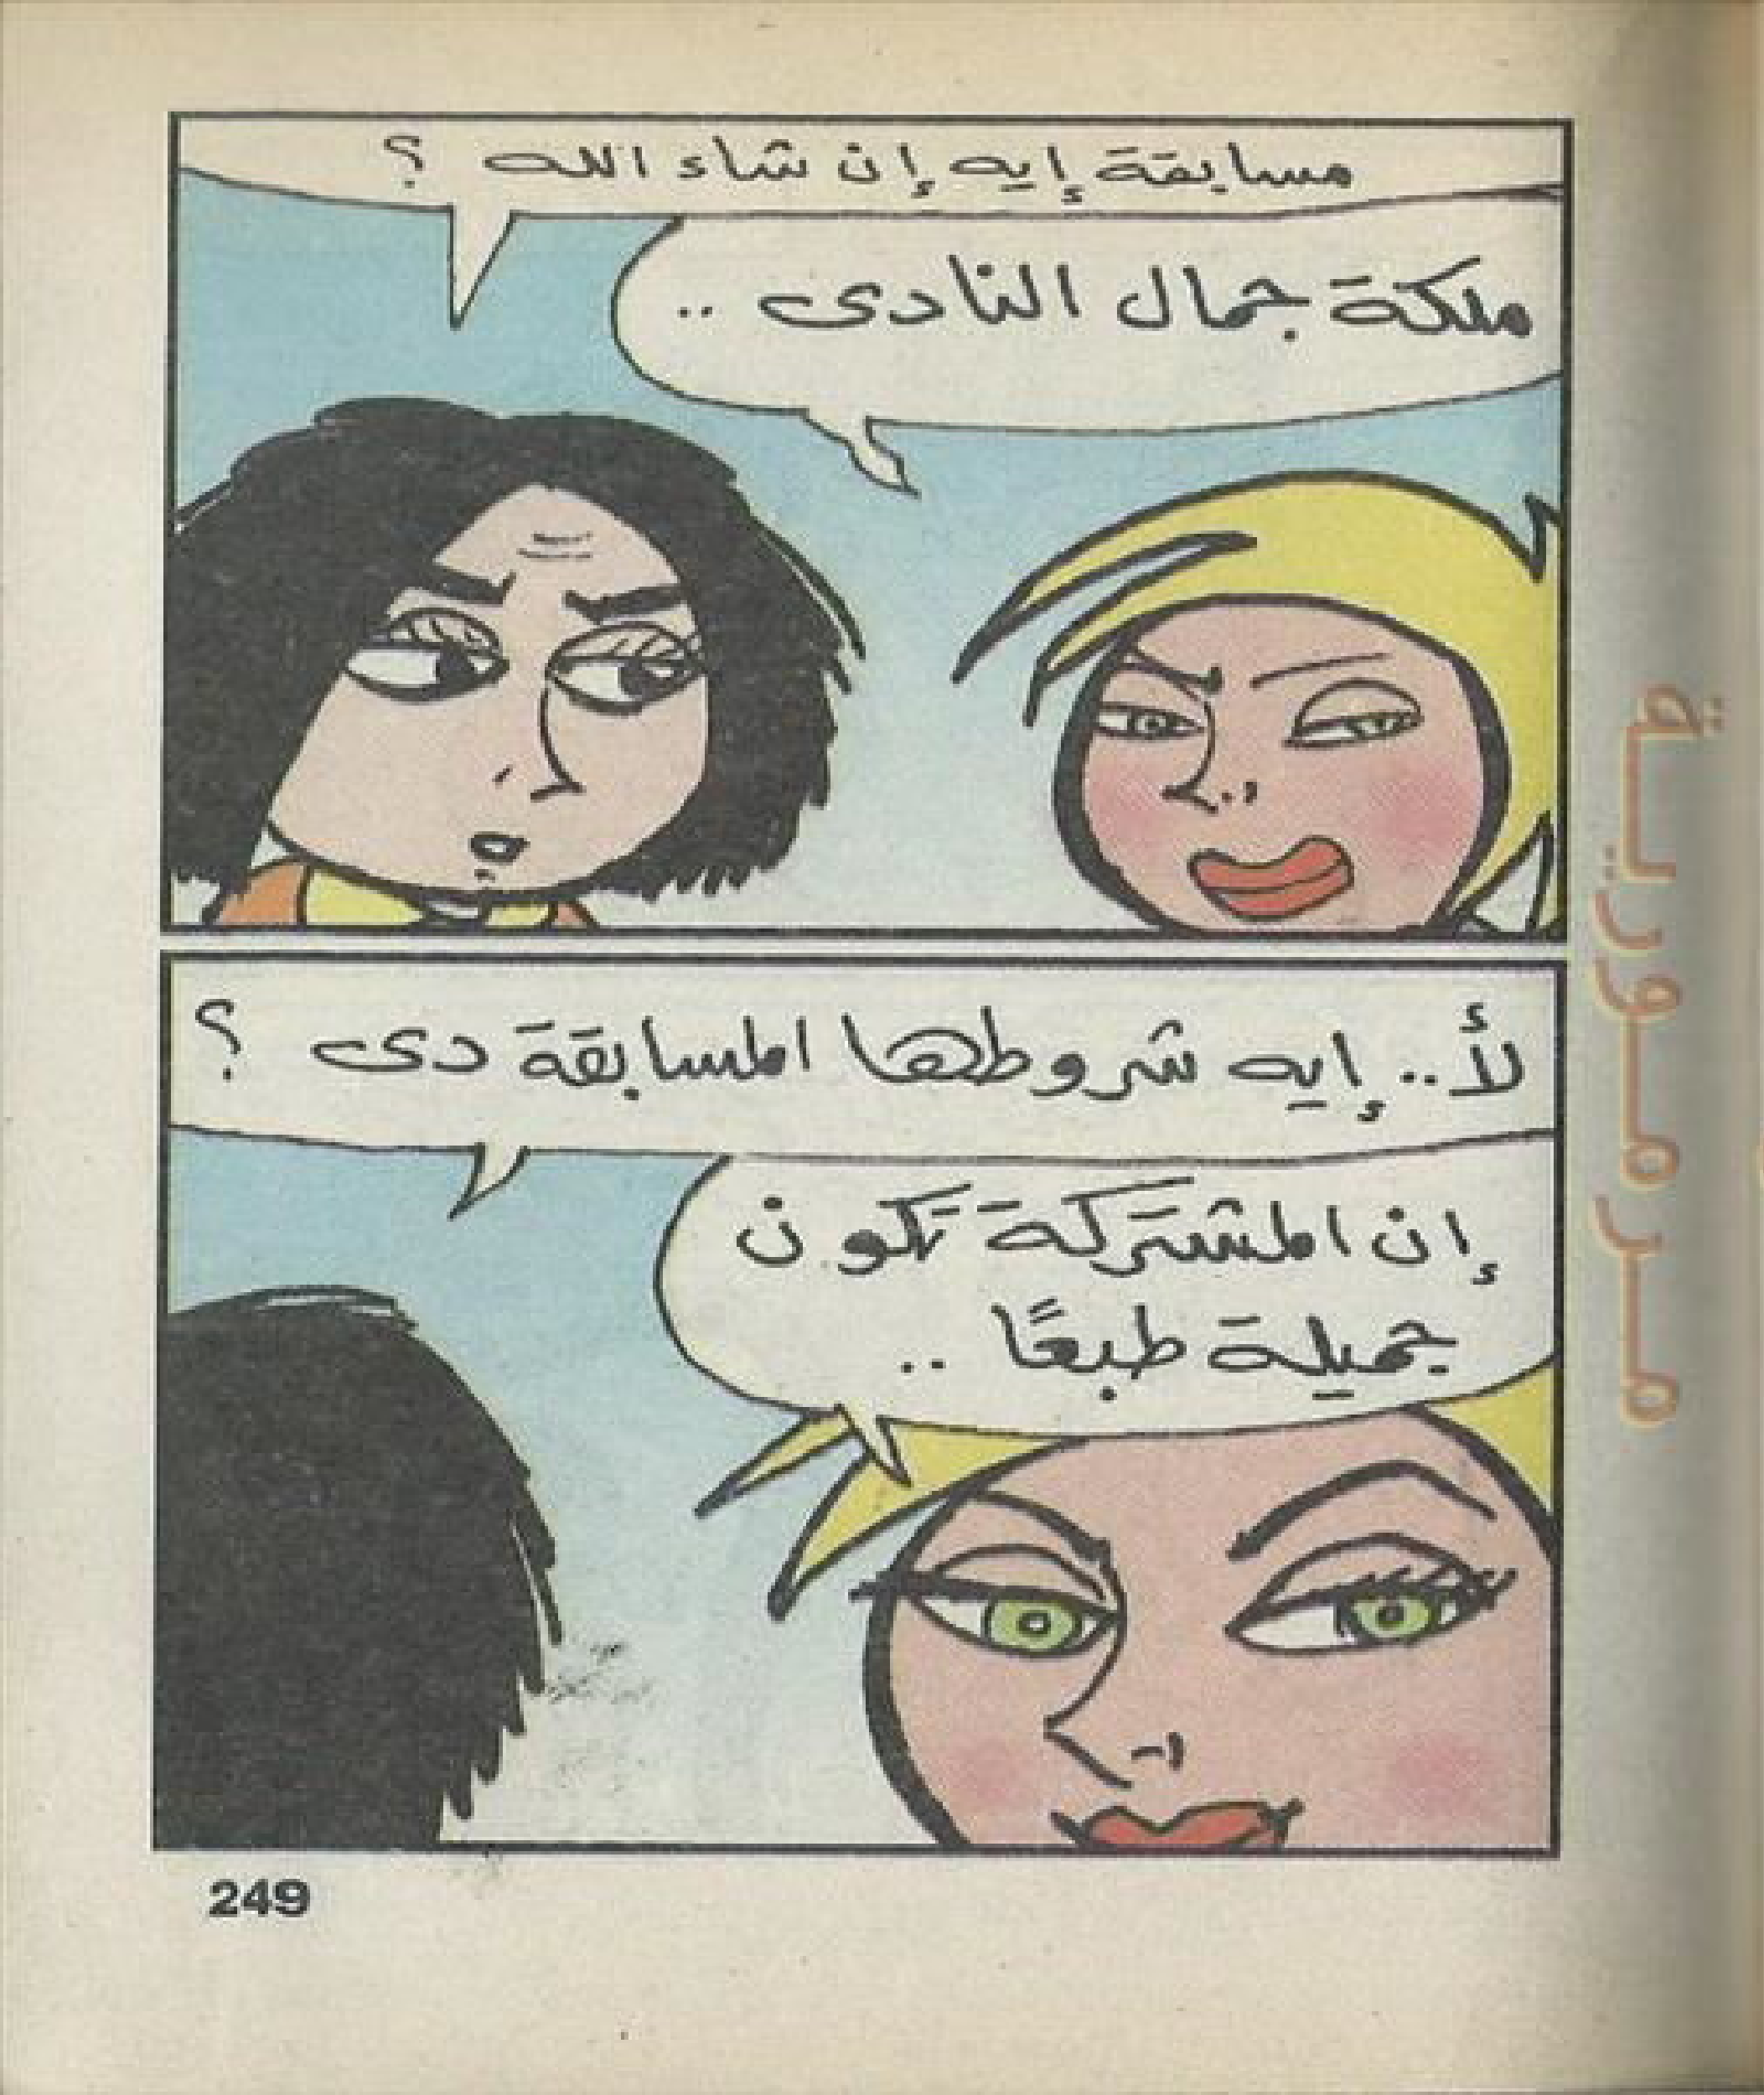 مسابقة إيه إن شاء الله ؟
ملكة جمال النادى ..
لأ.. إيه شروطها المسابقة دى ؟
إن المشتركة تكون
جميلة طبعًا ..
مرمورية
249